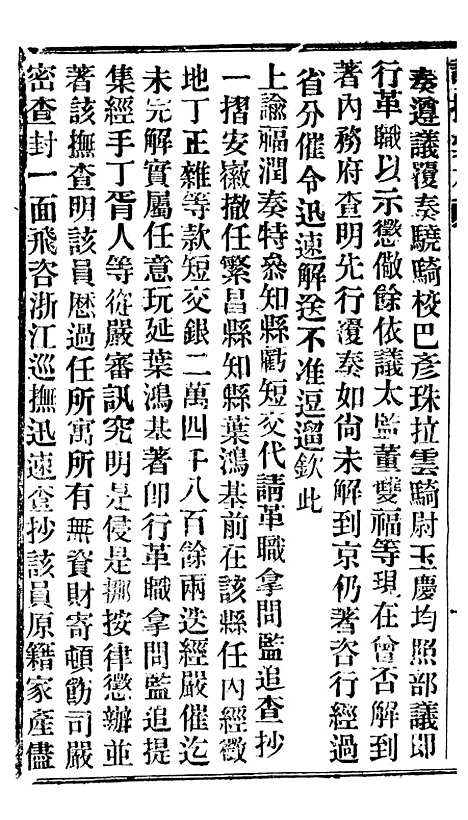 奏遵議覆奏驍騎校巴彥珠拉雲騎尉玉慶均照部議卽
行革職以示懲儆餘依議太監董雙福等現在曾否解到
著內務府查明先行覆奏如尙未解到京仍著咨行經過
省分催令迅速解送不准逗遛欽此
上諭福潤奏特參知縣虧短交代請革職拿問監追查抄
一摺安徽撤任繁昌縣知縣葉鴻基前在該縣任內經徵
地丁正雜等款短交銀二萬四千八百餘兩迭經嚴催迄
未完解實屬任意玩延葉鴻基著卽行革職拿問監追提
集經手丁胥人等從嚴審訊究明是侵是挪按律懲辦並
著該撫查明該員歷過任所寓所有無資財寄頓飭司嚴
密查封一面飛咨浙江巡撫迅速查抄該員原籍家產儘